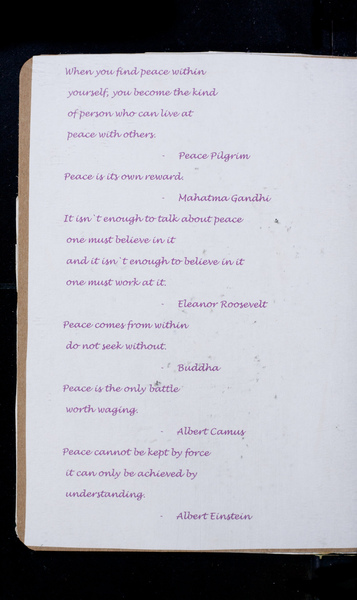 When you find peace within
yourself, you become the kind
of person who can live at
peace with others.
- Peace Pilgrim
Peace is its own reward.
- Mahatma Gandhi
It isn't enough to talk about peace
one must believe in it
and it isn't enough to believe in it
one must work at it.
- Eleanor Roosevelt
Peace comes from within
do not seek without.
- Buddha
Peace is the only battle
worth waging.
- Albert Camus
Peace cannot be kept by force
it can only be achieved by
understanding.
- Albert Einstein